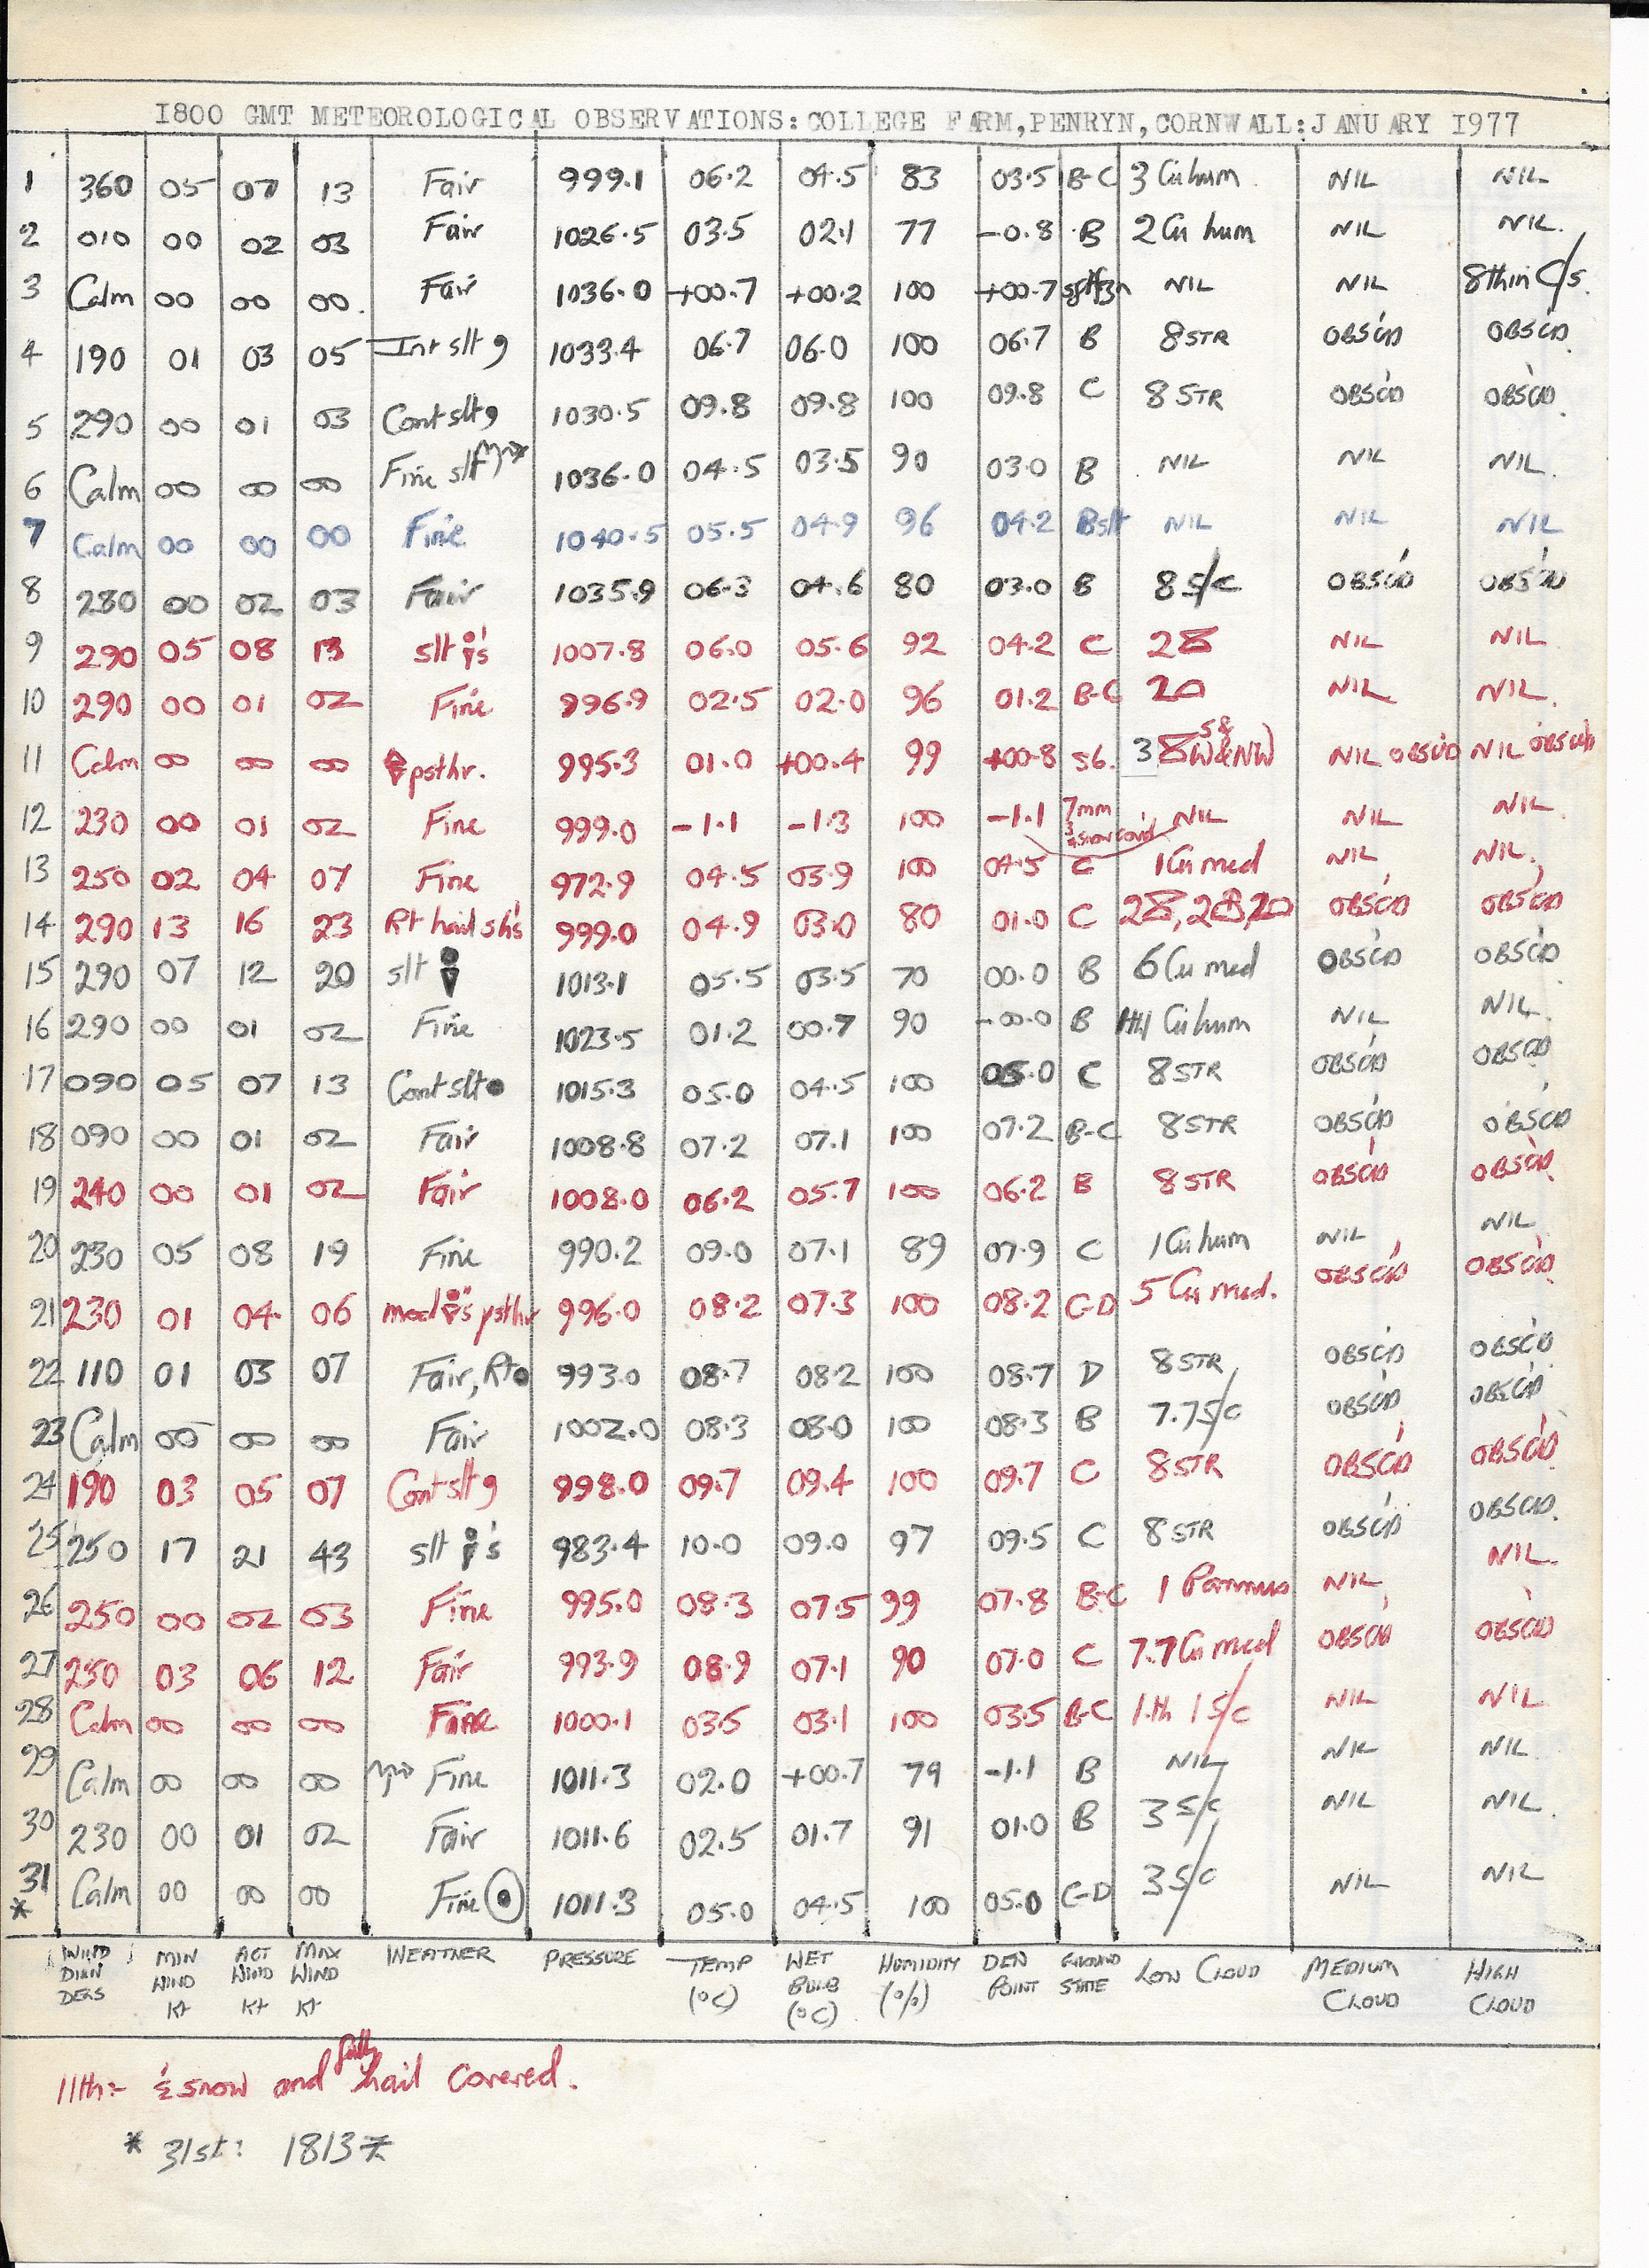 1800 GMT METEOROLOGICAL OBSERVATIONS: COLLEGE FARM, PENRYN, CORNWALL: JANUARY 1977
1 360 05 07 13 Fair 999.1 06.2 04.5 83 03.5 B-C 3 Cu hum NIL NIL
2 010 00 02 03 Fair 1026.5 03.5 02.1 77 -0.8 B 2 Cu hum NIL NIL.
3 Calm 00 00 00. Fair 1036.0 +00.7 +00.2 100 +00.7 NIL NIL 8 thin C/s.
4 190 01 03 05 Int slt 9 1033.4 06.7 06.0 100 06.7 B 8 STR OBSC'D OBSC'D
5 290 00 01 03 Cont slt 9 1030.5 09.8 09.8 100 09.8 C 8 STR OBSC'D OBSC'D
6 Calm 00 00 00 Fine slt 1036.0 04.5 03.5 90 03.0 B NIL NIL NIL.
7 Calm 00 00 00 Fine 1040.5 05.5 04.9 96 04.2 Bslt NIL NIL NIL
8 280 00 02 03 Fair 1035.9 06.3 04.6 80 03.0 B 8 S/c OBSC'D OBSC'D
9 290 05 08 13 slt 's 1007.8 06.0 05.6 92 04.2 C 2 NIL NIL
10 290 00 01 02 Fine 996.9 02.5 02.0 96 01.2 B-C 2 NIL NIL.
11 Calm 00 00 00 psthr. 995.3 01.0 +00.4 99 +00.8 s6. 3 S& W&NW NIL OBSC'D NIL OBSC'D
12 230 00 01 02 Fine 999.0 -1.1 -1.3 100 -1.1 7mm snow cov'd NIL NIL NIL
13 250 02 04 07 Fine 972.9 04.5 03.9 100 04.5 C 1 Cu med NIL NIL.
14 290 13 16 23 Rt hail sh's 999.0 04.9 03.0 80 01.0 C 2, 2, 2 OBSC'D OBSC'D
15 290 07 12 20 slt 1013.1 05.5 03.5 70 00.0 B 6 Cu med OBSC'D OBSC'D
16 290 00 01 02 Fine 1023.5 01.2 00.7 90 -00.0 B Cu hum NIL NIL.
17 090 05 07 13 Cont slt ● 1015.3 05.0 04.5 100 05.0 C 8 STR OBSC'D OBSC'D
18 090 00 01 02 Fair 1008.8 07.2 07.1 100 07.2 B-C 8 STR OBSC'D OBSC'D
19 240 00 01 02 Fair 1008.0 06.2 05.7 100 06.2 B 8 STR OBSC'D OBSC'D
20 230 05 08 19 Fine 990.2 09.0 07.1 89 07.9 C 1 Cu hum NIL NIL
21 230 01 04 06 mod 's psthr 996.0 08.2 07.3 100 08.2 C-D 5 Cu med. OBSC'D OBSC'D
22 110 01 03 07 Fair, Rt ● 993.0 08.7 08.2 100 08.7 D 8 STR OBSC'D OBSC'D
23 Calm 00 00 00 Fair 1002.0 08.3 08.0 100 08.3 B 7.7 S/c OBSC'D OBSC'D
24 190 03 05 07 Cont slt 9 998.0 09.7 09.4 100 09.7 C 8 STR OBSC'D OBSC'D
25 250 17 21 43 slt 's 983.4 10.0 09.0 97 09.5 C 8 STR OBSC'D OBSC'D.
26 250 00 02 03 Fine 995.0 08.3 07.5 99 07.8 B-C 1 Pannus NIL NIL.
27 250 03 06 12 Fair 993.9 08.9 07.1 90 07.0 C 7.7 Cu med OBSC'D OBSC'D
28 Calm 00 00 00 Fine 1000.1 03.5 03.1 100 03.5 B-C 1.th 1 S/c NIL NIL
29 Calm 00 00 00 Fine 1011.3 02.0 +00.7 79 -1.1 B NIL NIL NIL
30 230 00 01 02 Fair 1011.6 02.5 01.7 91 01.0 B 3 S/c NIL NIL.
31 Calm 00 00 00 Fine 1011.3 05.0 04.5 100 05.0 C-D 3 S/c NIL NIL
*
WIND DIRN DEGS MIN WIND Kt ACT WIND Kt MAX WIND Kt WEATHER PRESSURE TEMP (°C) WET BULB (°C) HUMIDITY (%) DEW POINT GROUND STATE LOW CLOUD MEDIUM CLOUD HIGH CLOUD
11th:- ½ snow and fully hail covered.
* 31st: 1813 *